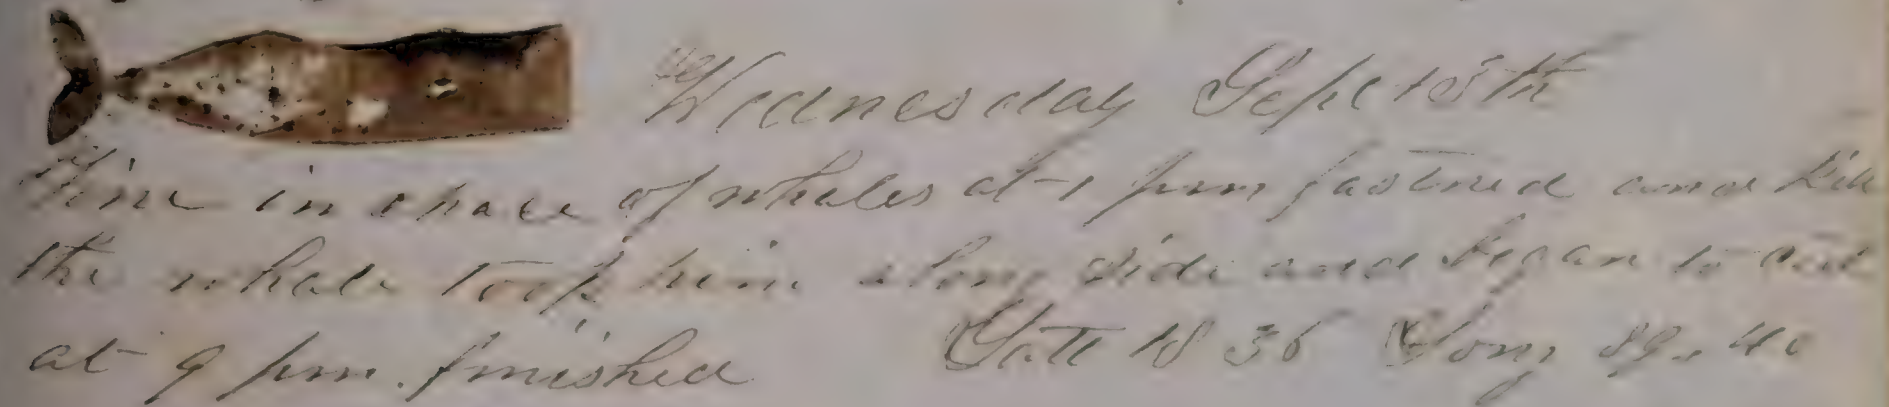 Wednesday Sept 18th
Time in chace of whales at 1 pm fastned and kill
the whale took him along side and began to cut
at 9 pm. finished Latt 18 36 Long 89. 40